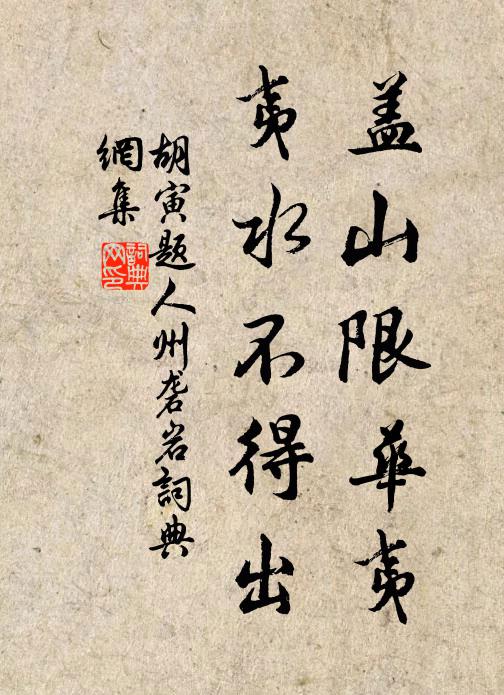 盖山限華夷
夷水不得出
胡寅题人州砻岩詞典
網集
詞典
网印